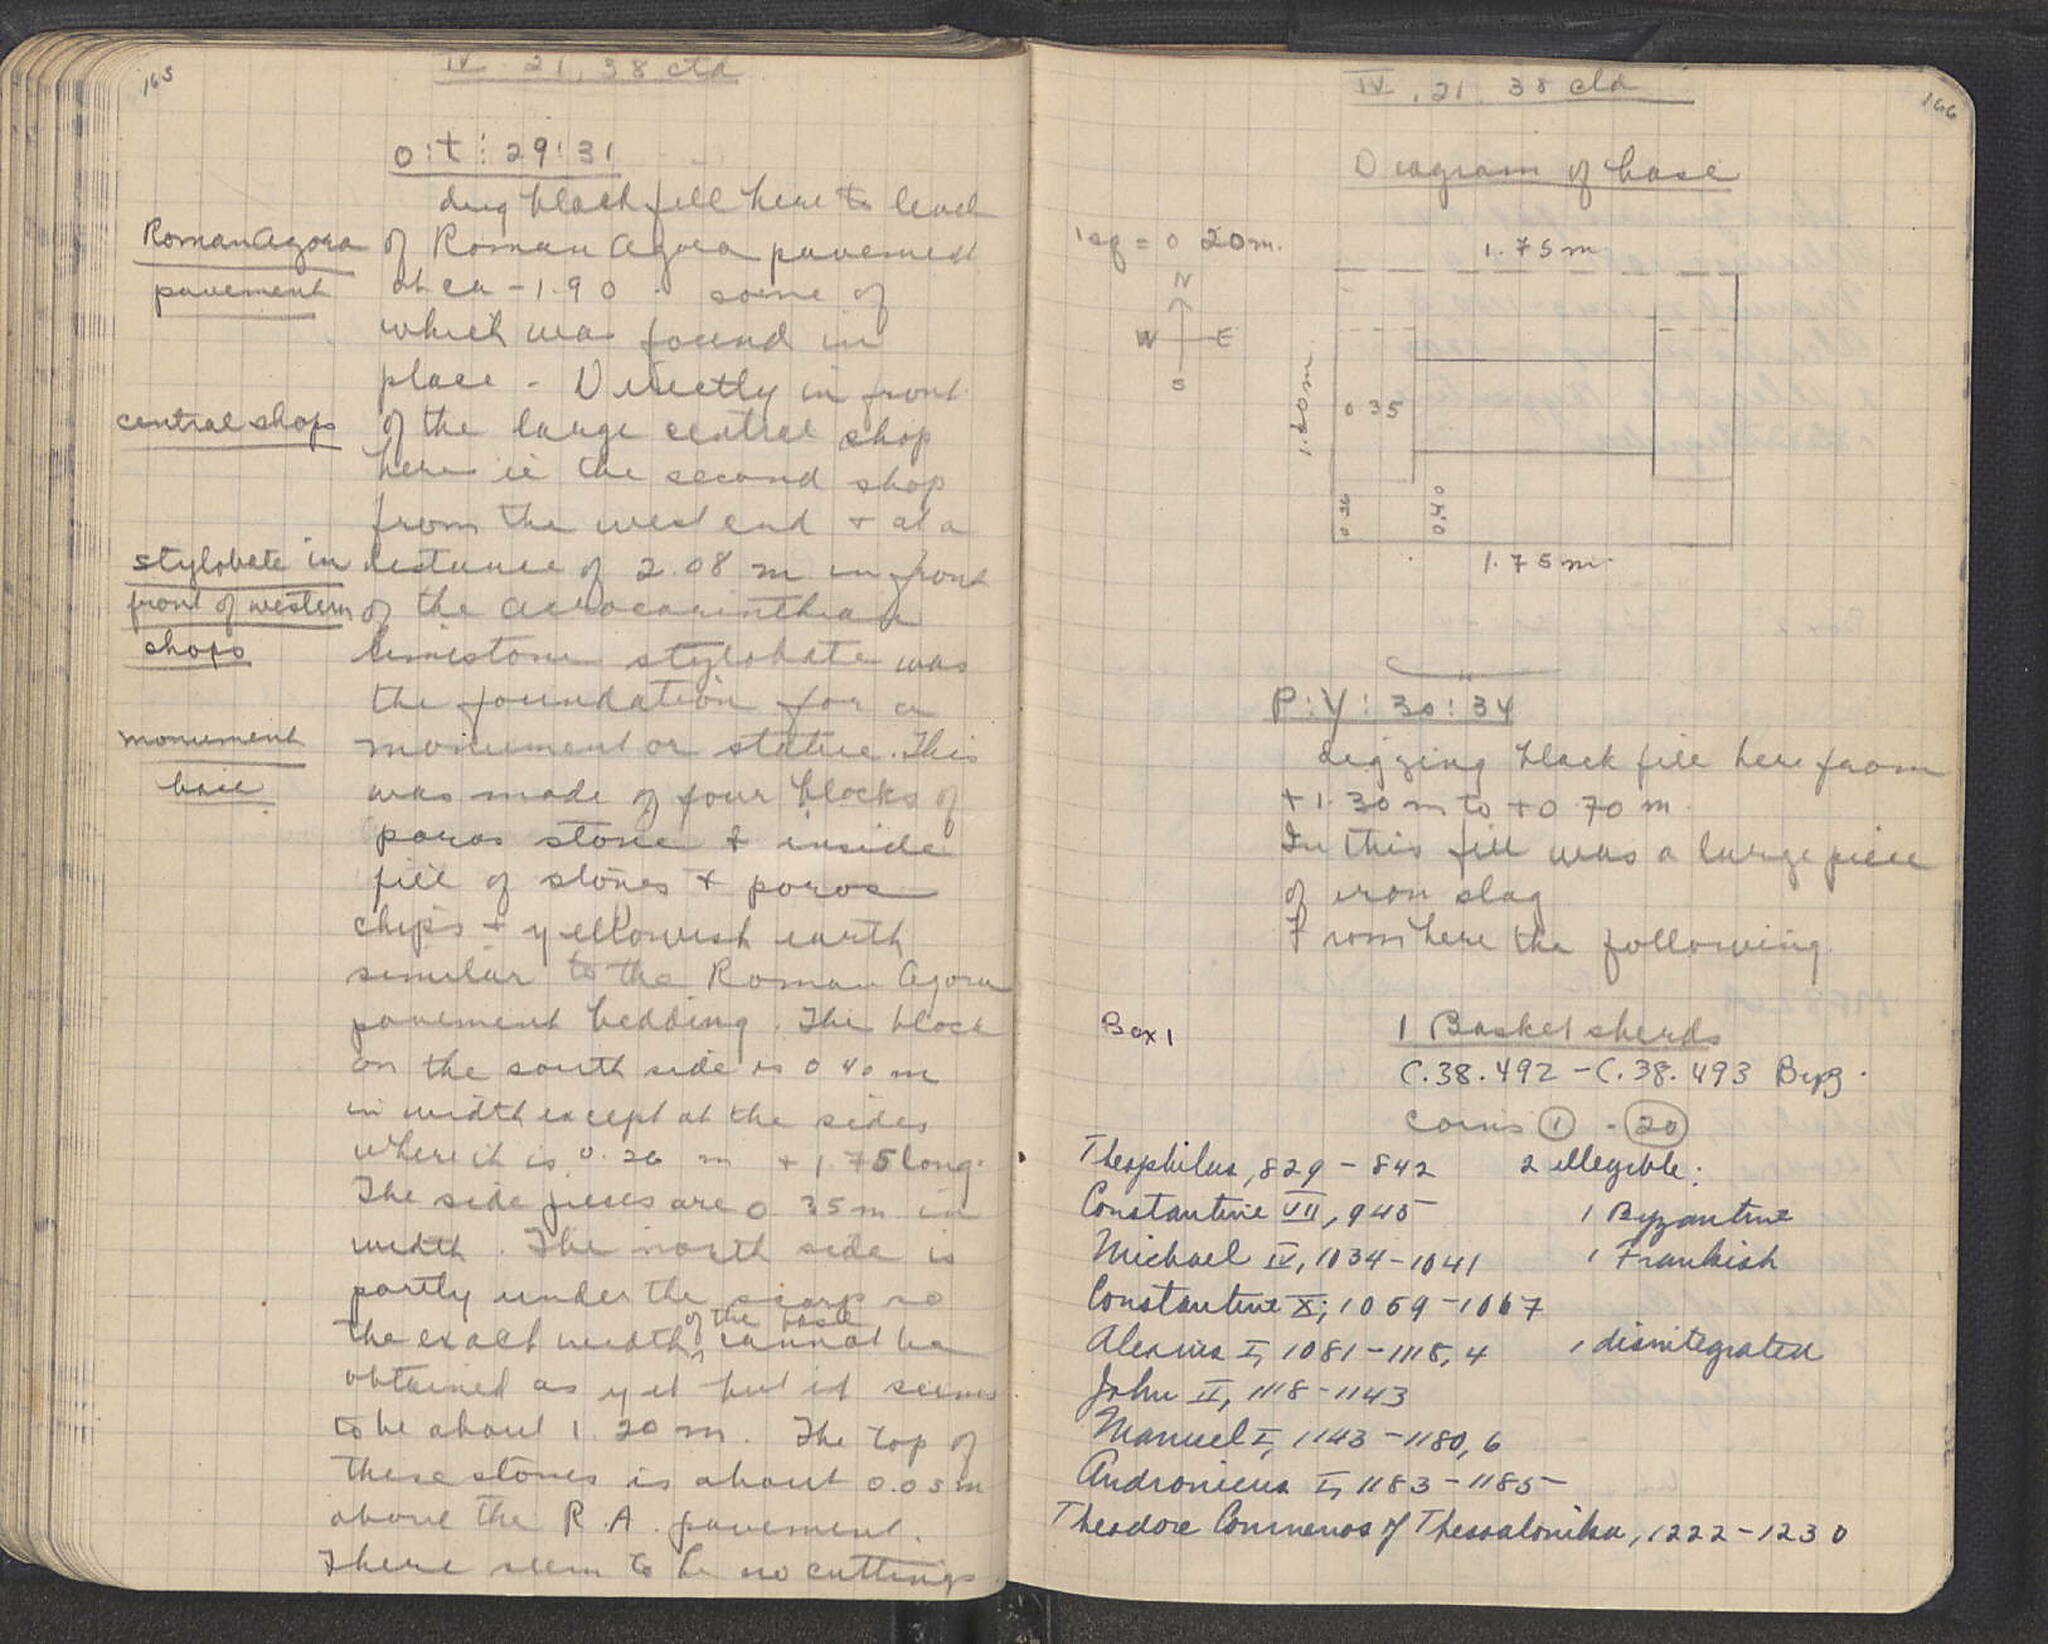 165
IV 21, 38 ctd
O:t:29:31
dug black fill here to level
of Roman Agora pavement
at ca -1.90 - some of
which was found in
place - Directly in front
of the large central shop
here ie the second shop
from the west end + at a
distance of 2.08 m in front
of the acrocorinthian
limestone stylobate was
the foundation for a
monument or statue. This
was made of four blocks of
poros stone + inside
fill of stones + poros
chips + yellowish earth
similar to the Roman Agora
pavement bedding. The block
on the south side is 0 40 m
in width except at the sides
where it is 0.26 m + 1.75 long.
The side pieces are 0 35 m in
width. The north side is
partly under the scarp so
the exact width of the base cannot be
obtained as yet but it seems
to be about 1.20 m. The top of
these stones is about 0.05 m
above the R.A. pavement.
There seem to be no cuttings
Roman Agora
pavement
central shops
stylobate in
front of western
shops
monument
base
166
IV . 21 38 ctd
Diagram of base
1 sq = 0 20 m.
N
W E
S
1.75 m
1.20 m
0 35
0 26
0.40
1.75 m.
P:Y:30:34
digging black fill here from
+1.30 m to +0.70 m.
In this fill was a large piece
of iron slag
From here the following
Box 1
1 Basket sherds
C.38.492 - C.38.493 Byz.
coins 1 - 20
Theophilus, 829 - 842 2 illegible:
Constantine VII, 945 1 Byzantine
Michael IV, 1034-1041 1 Frankish
Constantine X; 1059-1067
Alexius I, 1081-1118, 4 1 disintegrated
John II, 1118-1143
Manuel I, 1143-1180, 6
Andronicus I, 1183-1185
Theodore Comnenos of Thessalonika, 1222-1230